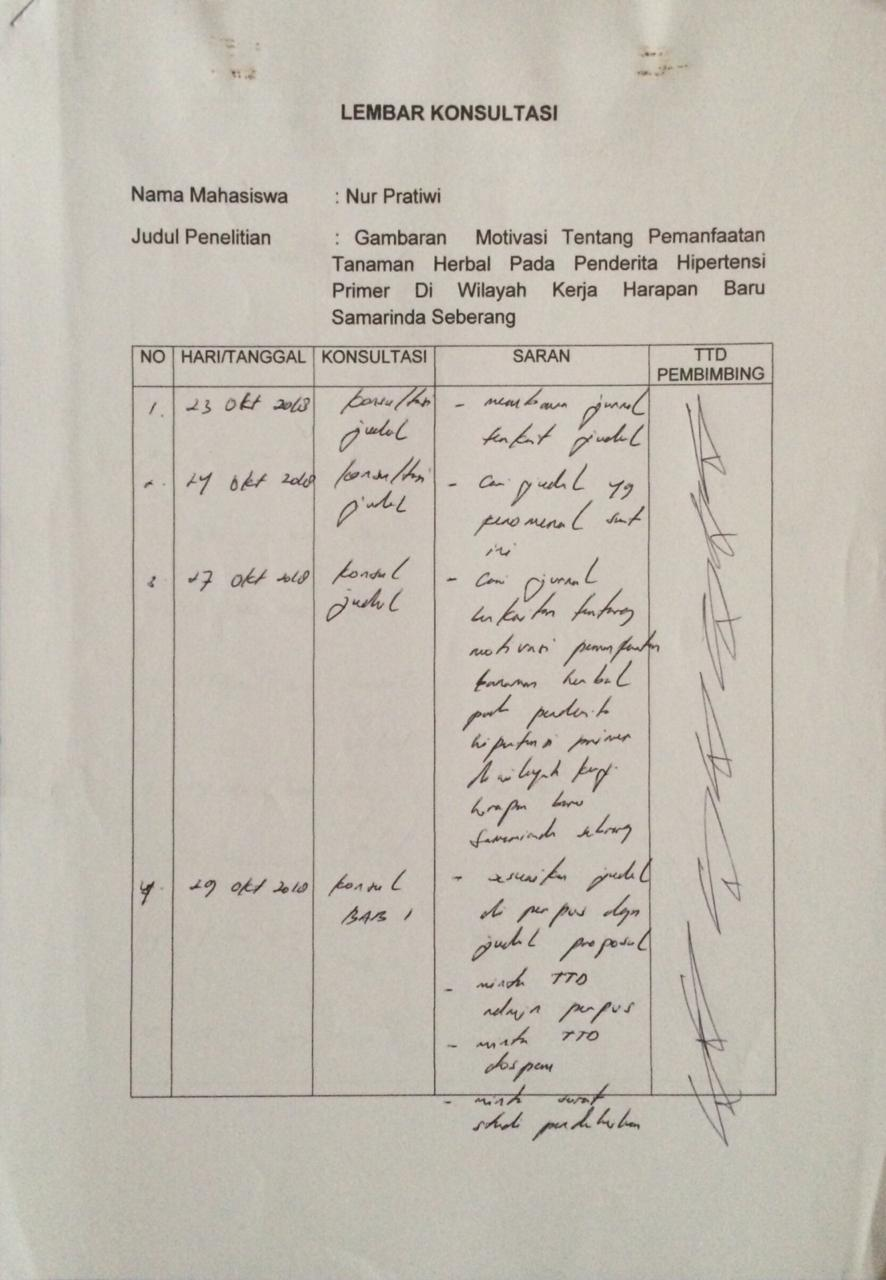 LEMBAR KONSULTASI
Nama Mahasiswa : Nur Pratiwi
Judul Penelitian : Gambaran Motivasi Tentang Pemanfaatan
Tanaman Herbal Pada Penderita Hipertensi
Primer Di Wilayah Kerja Harapan Baru
Samarinda Seberang
NO HARI/TANGGAL KONSULTASI SARAN TTD
PEMBIMBING
1. 23 Okt 2018 konsultasi - membawa jurnal
judul terkait judul
2. 24 Okt 2018 konsultasi - Cari judul yg
judul fenomenal saat
ini
3 27 Okt 2018 konsul - Cari jurnal
judul berkaitan tentang
motivasi pemanfaatan
tanaman herbal
pada penderita
hipertensi primer
di wilayah kerja
harapan baru
Samarinda sebrang
4. 29 Okt 2018 konsul - sesuaikan judul
BAB 1 di perpus dgn
judul proposal
- minta TTD
perpus
- minta TTD
- minta surat
studi pendahuluan